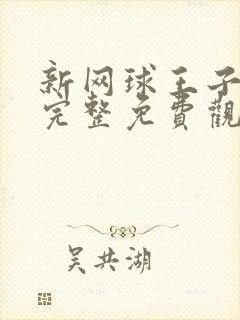 新网球王子
完整免費觀
吴共湖